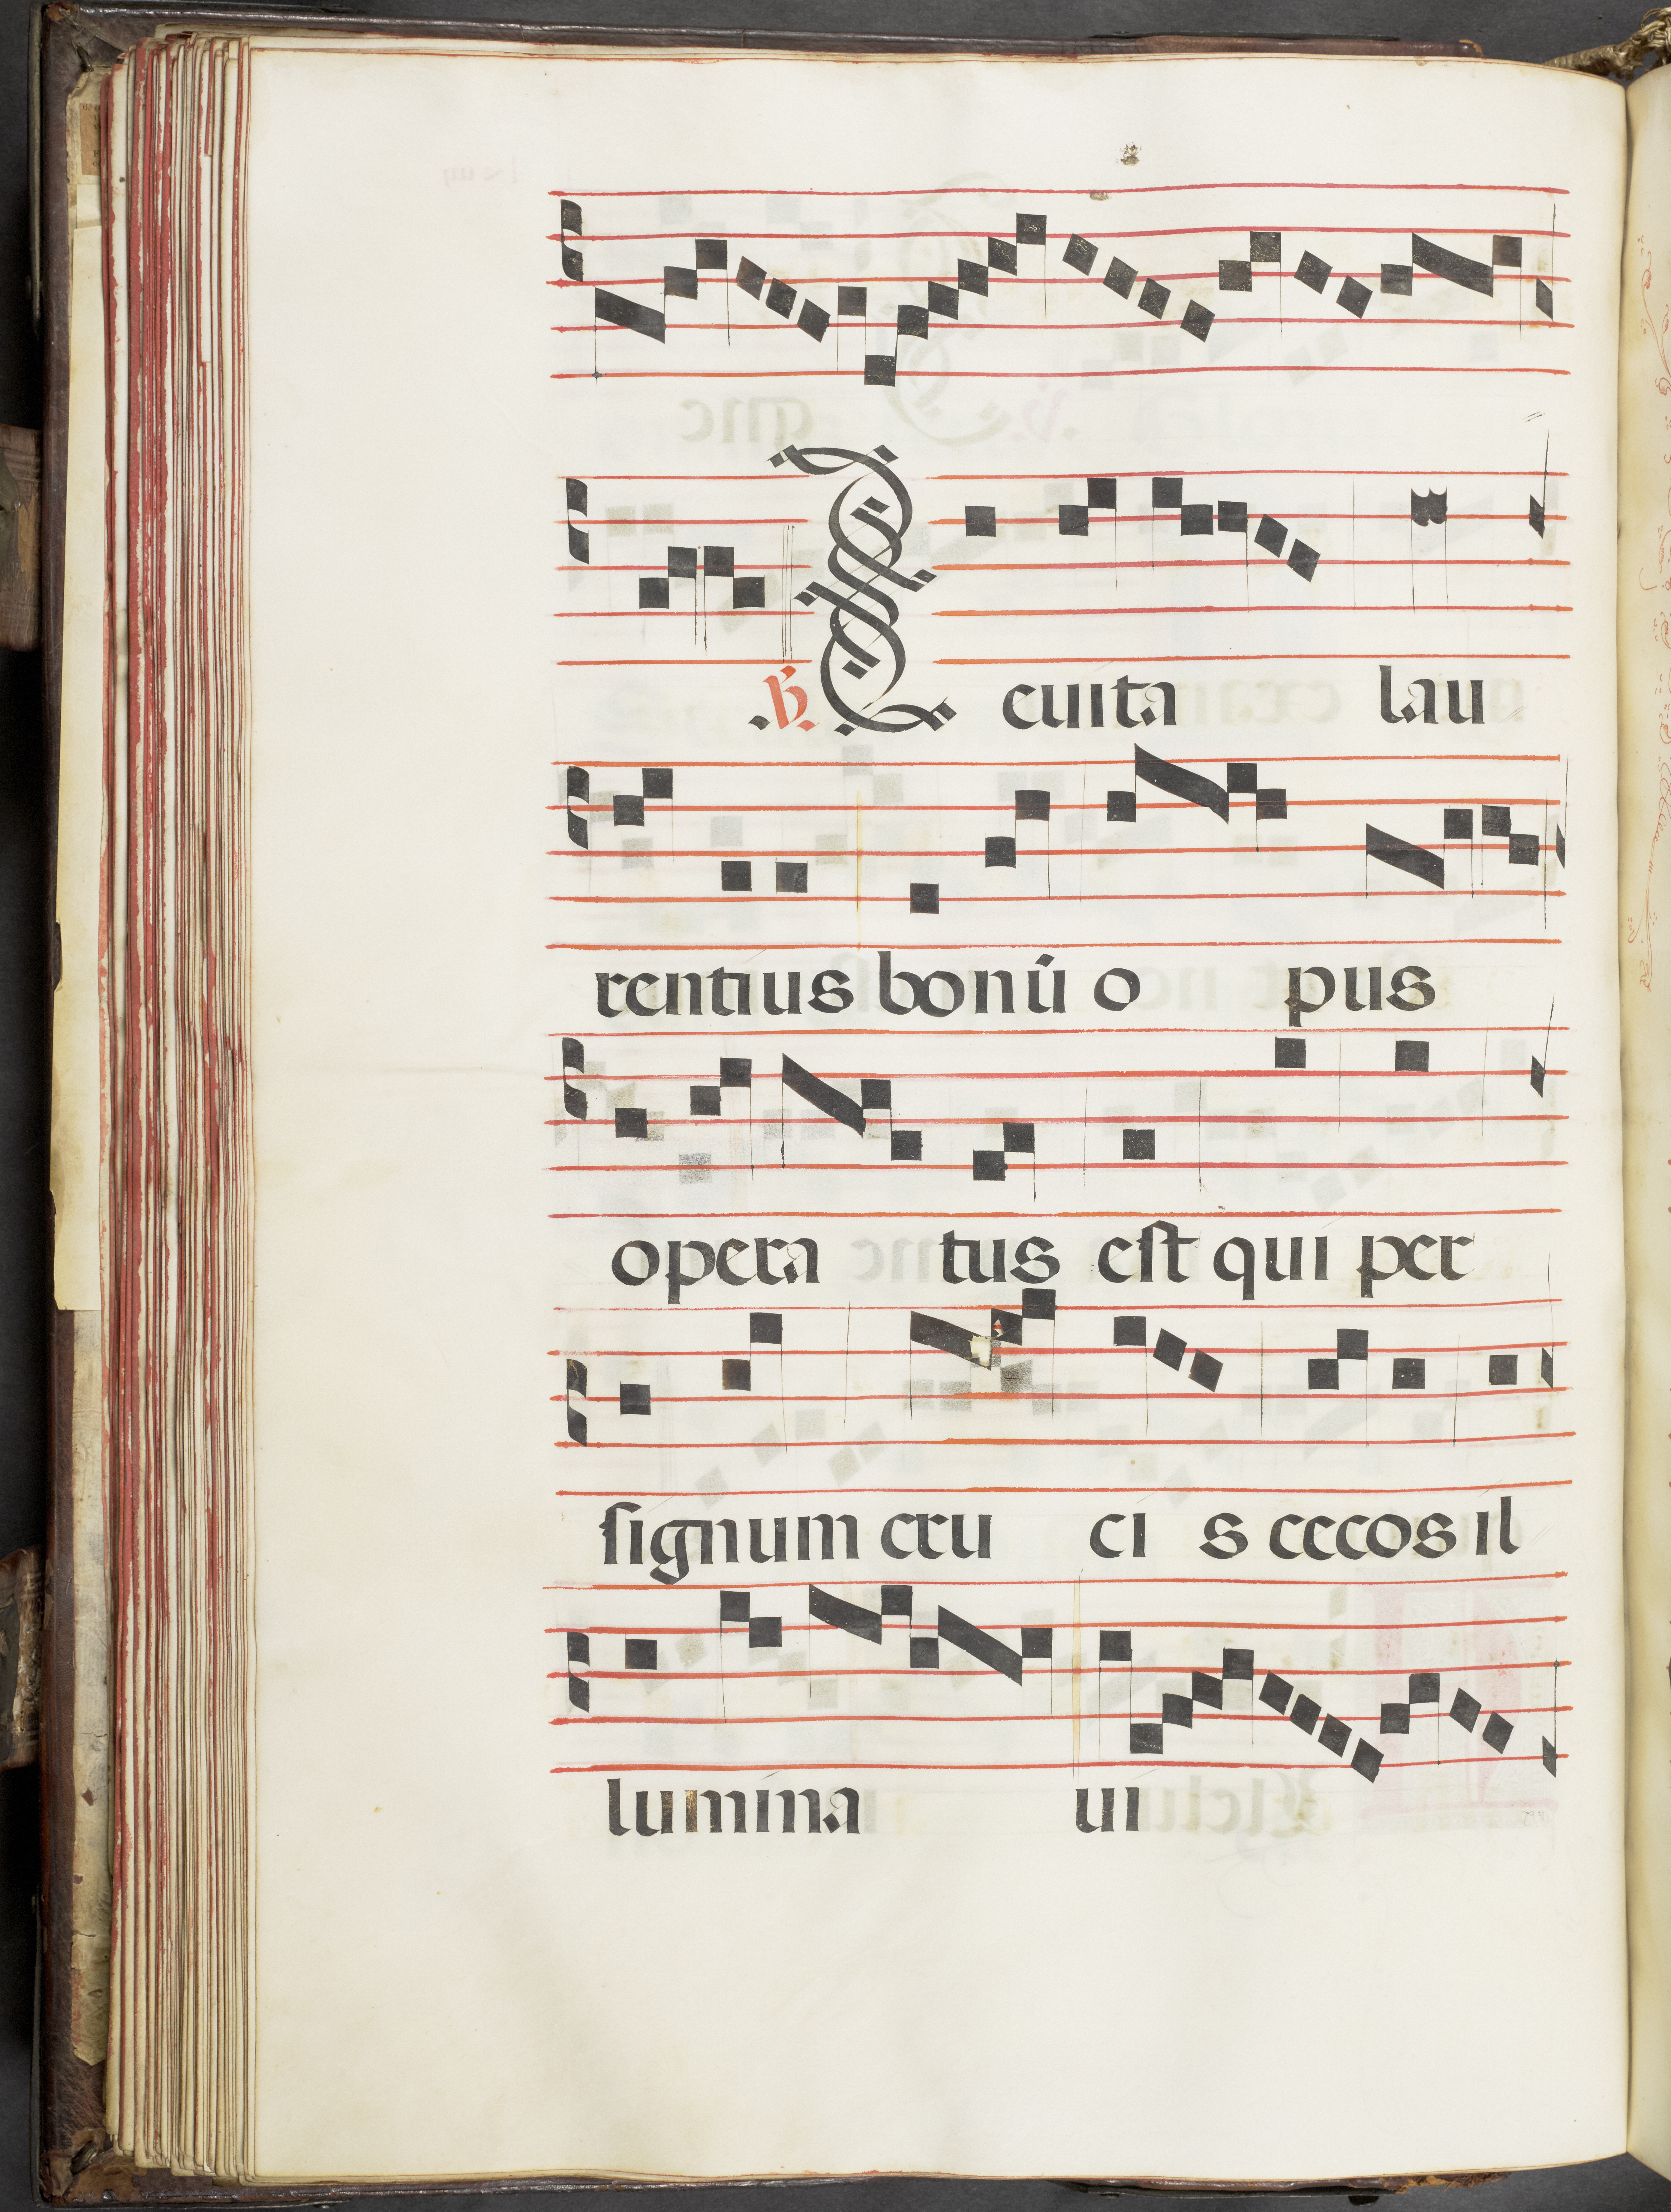 .℟. Leuita lau
rentius bonū o pus
opera tus eſt qui per
ſignum cru ci s cecos il
lumina ui